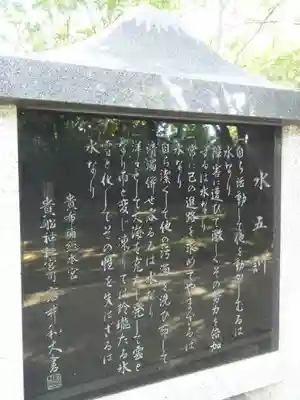 水五訓
自ら活動して他を動かしむるは
水なり
障害に遭ひて激しくその勢力を倍加
するは水なり
常に己の進路を求めてやまざるは
水なり
自ら潔くして他の汚濁を洗ひ而して
清濁併せ容るるは水なり
洋々として大海を充たし発して雲と
なり雨と変じ凍りては玲瓏たる氷
雪と化してその性を失はざるは
水なり
貴布禰総本宮
貴船神社宮司